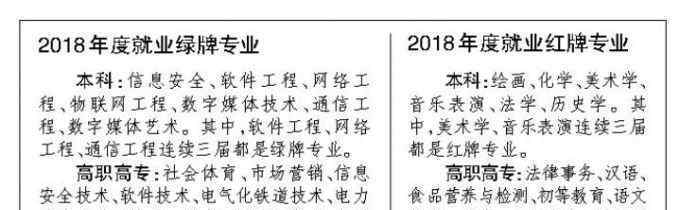 2018年度就业绿牌专业
本科:信息安全、软件工程、网络工
程、物联网工程、数字媒体技术、通信工
程、数字媒体艺术。其中,软件工程、网络
工程、通信工程连续三届都是绿牌专业。
高职高专:社会体育、市场营销、信息
安全技术、软件技术、电气化铁道技术、电力
2018年度就业红牌专业
本科:绘画、化学、美术学、
音乐表演、法学、历史学。其
中,美术学、音乐表演连续三届
都是红牌专业。
高职高专:法律事务、汉语、
食品营养与检测、初等教育、语文